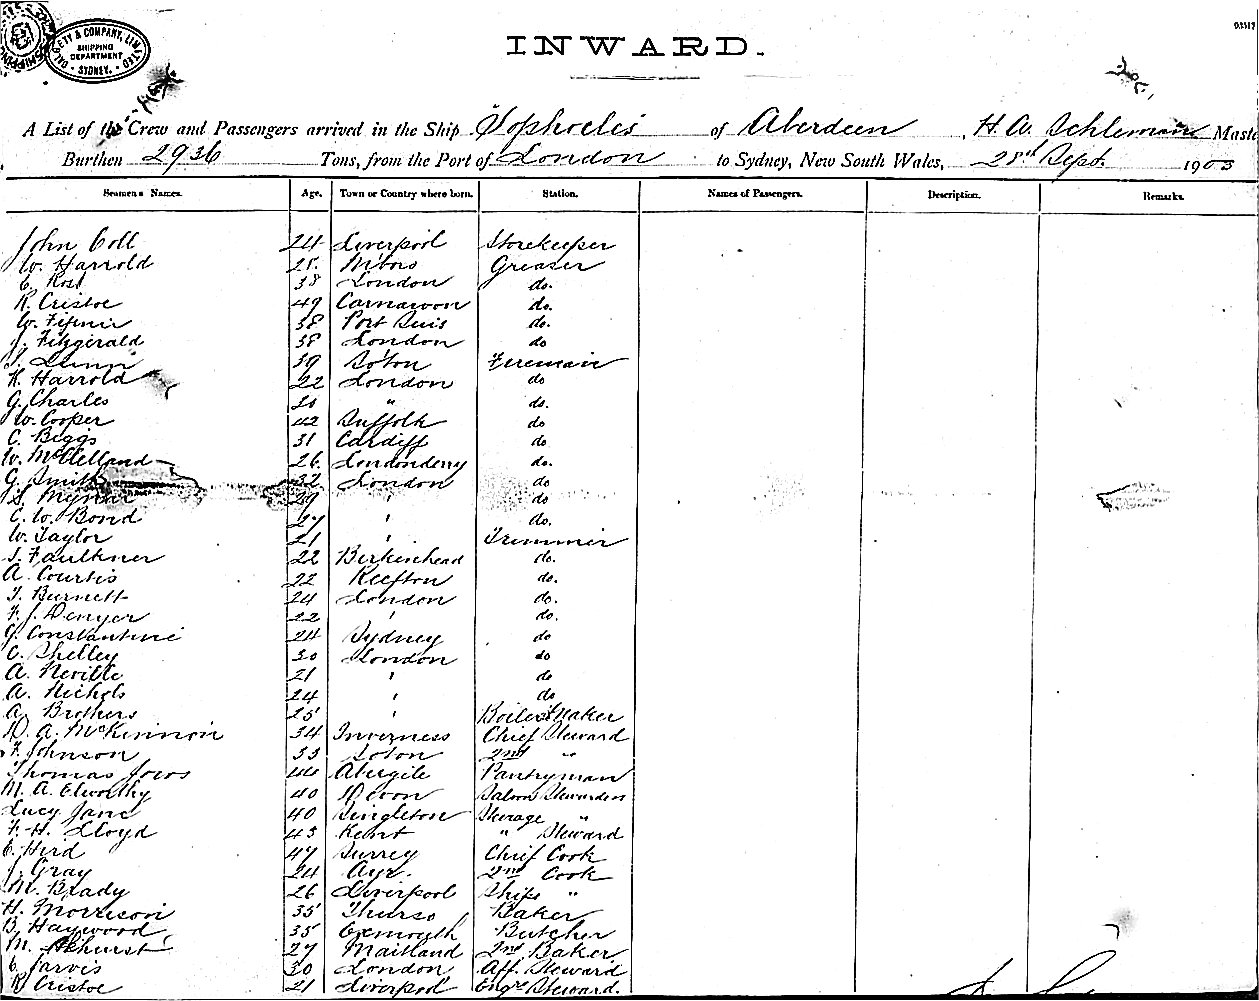 DALGETY & COMPANY, LIMITED
SHIPPING
DEPARTMENT
SYDNEY.
INWARD.
A List of the Crew and Passengers arrived in the Ship Sophocles of Aberdeen, H. A. Schleman Maste
Burthen 2936 Tons, from the Port of London to Sydney, New South Wales, 28th Sept 1903
Seamens Names. Age. Town or Country where born. Station. Names of Passengers. Description. Remarks.
John Coll 24 Liverpool Storekeeper
W. Harrold 28 M'boro Greaser
C. Ross 38 London do.
R. Cristoe 49 Carnarvon do.
W. 38 Port do
J. Fitzgerald 38 London do
39 So'ton Fireman
K. Harrold 22 London do
G. Charles 30 " do.
W. Cooper 42 Suffolk do
C. Biggs 31 Cardiff do
W. McClelland 26 Londonderry do.
G. Smith 32 London do
S. 29 ' do
C. W. Bond 27 ' do.
W. Taylor 21 ' Trimmer
J. Faulkner 22 Birkenhead do.
A. Courtis 22 Reefton do.
T. Burnett 24 London do.
F. J. Denyer 22 ' do.
G. Constantine 24 Sydney do
C. Shelley 30 London do
A. Neville 21 ' do
A. Nichols 24 ' do
A. Brothers 25 ' Boiler Maker
D. A. McKinnon 34 Inverness Chief Steward
F. Johnson 33 So'ton 2nd "
Thomas 44 Abergile Pantryman
M. A. Elworthy 40 Devon Saloon Stewardess
Lucy Jane 40 Singleton Sterage "
F. H. Lloyd 43 Kent " Steward
C. Hird 47 Surrey Chief Cook
J. Gray 24 Ayr. 2nd Cook
M. Brady 26 Liverpool Ships "
H. Morrison 35 Thurso Baker
B. Haywood 35 Exmouth Butcher
M. Akhurst 27 Maitland 2nd Baker
C. Jarvis 30 London Aff. Steward
R Cristoe 21 Liverpool Engrs Steward.